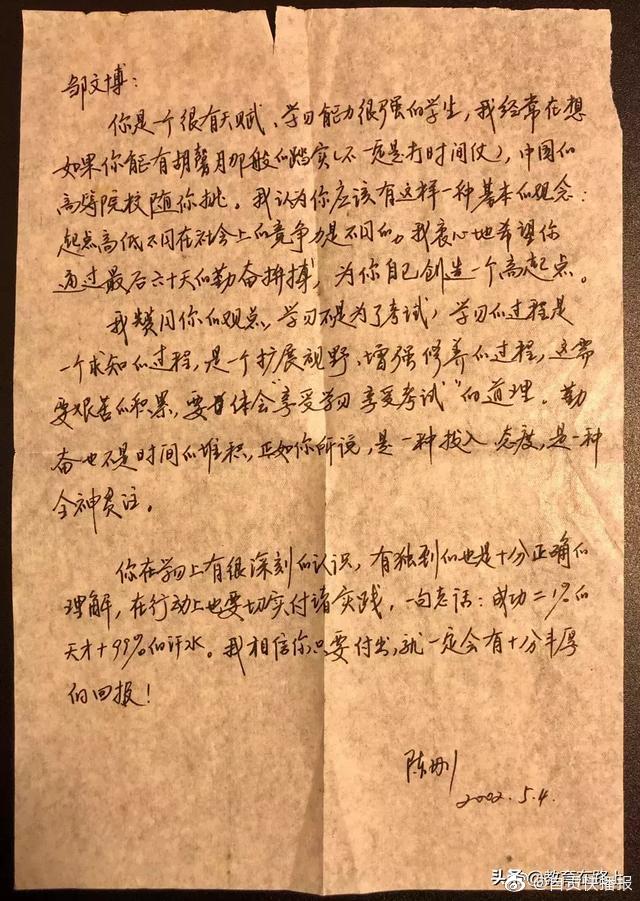 邹文博：
你是一个很有天赋、学习能力很强的学生，我经常在想
如果你能有胡馨月那般的踏实（不一定是打时间仗），中国的
高等院校随你挑。我认为你应该有这样一种基本的观念：
起点高低不同在社会上的竞争力是不同的。我衷心地希望你
通过最后六十天的勤奋拼搏，为你自己创造一个高起点。
我赞同你的观点，学习不是为了考试，学习的过程是
一个求知的过程，是一个扩展视野、增强修养的过程，这需
要艰苦的积累，要体会“享受学习 享受考试”的道理。勤
奋也不是时间的堆积，正如你所说，是一种投入态度，是一种
全神贯注。
你在学习上有很深刻的认识，有独到的也是十分正确的
理解，在行动上也要切实付诸实践，一句老话：成功=1%的
天才+99%的汗水。我相信你只要付出，就一定会有十分丰厚
的回报！
陈刚
2002.5.4.
头条@教育在路上
@自贡快播报